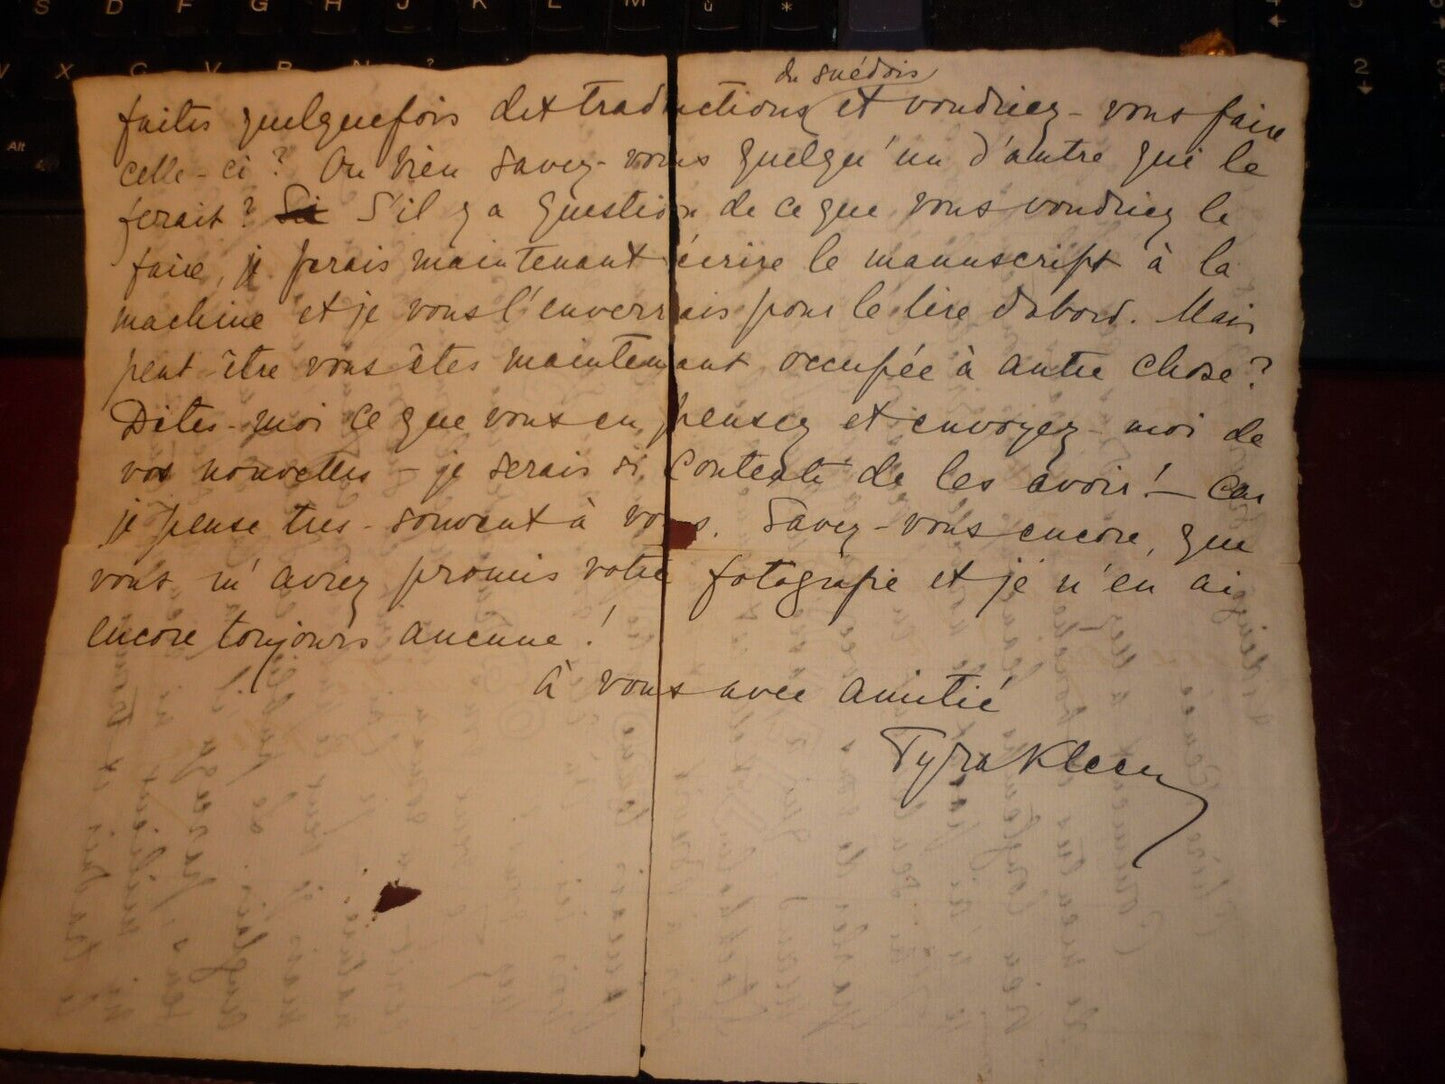 S D F G H J K L M ù *
X C V B N ?
Alt
2
du suédois
faites quelquefois des traductions et voudriez-vous faire
celle-ci? Ou bien savez-vous quelqu'un d'autre qui le
ferait? Si S'il y a question de ce que vous voudriez le
faire, je ferais maintenant écrire le manuscript à la
machine et je vous l'enverrais pour le lire d'abord. Mais
peut-être vous êtes maintenant occupée à autre chose?
Dites-moi ce que vous en pensez et envoyez-moi de
vos nouvelles – je serais si contente de les avoir! – Car
je pense très-souvent à vous. Savez-vous encore, que
vous m'aviez promis votre fotografie et je n'en ai
encore toujours aucune!
à vous avec amitié
Tyra Kleen